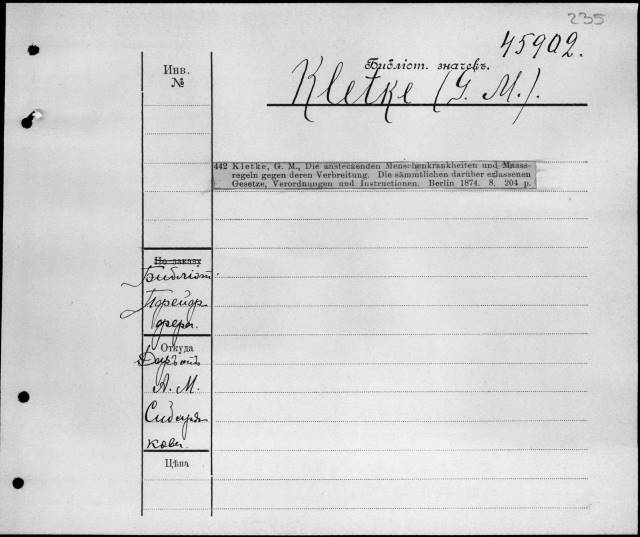 235
45902.
Библіот. значовъ.
Kletke (G. M.).
Инв.
№
442 Kletke, G. M., Die ansteckenden Menschenkrankheiten und Maass-
regeln gegen deren Verbreitung. Die sämmtlichen darüber erlassenen
Gesetze, Verordnungen und Instructionen. Berlin 1874. 8. 204 p.
По заказу
Библіот.
Пфейф
фера.
Откуда
Даръ отъ
А. М.
Сибиря
кова.
Цѣна